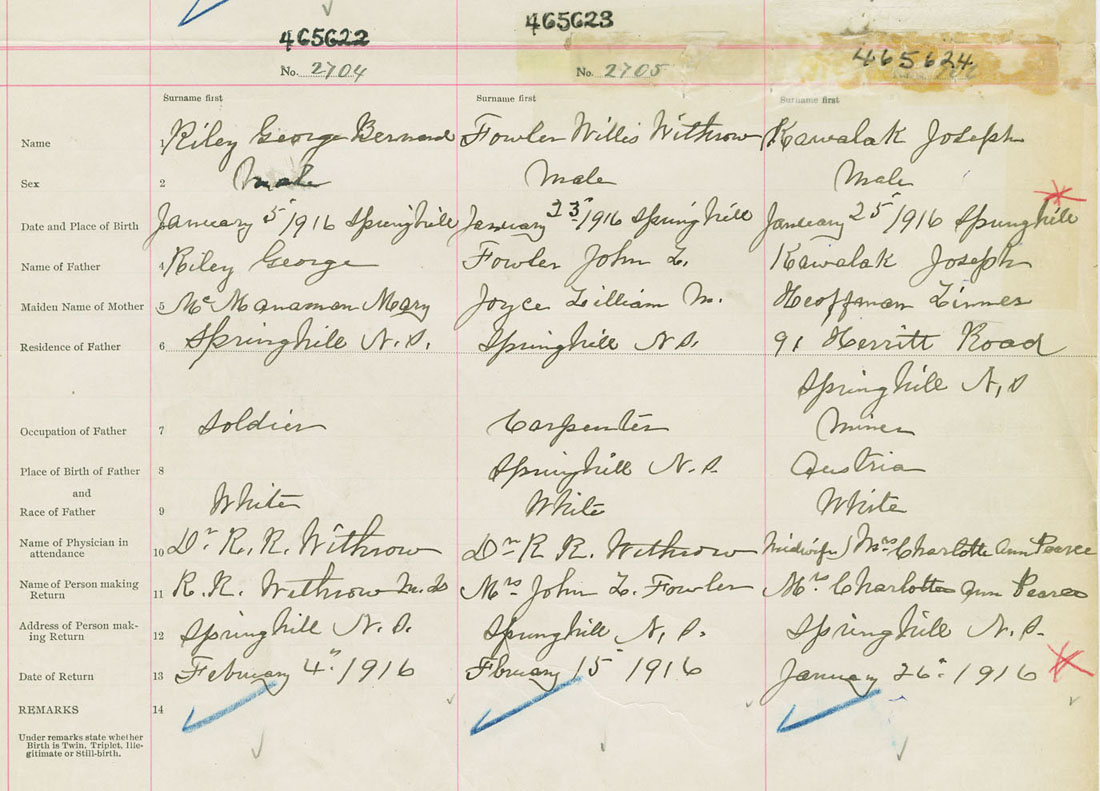 465622 465623 465624
No. 2704 No. 2705
Surname first Surname first Surname first
Name 1 Riley George Bernard Fowler Willis Withrow Kawalak Joseph
Sex 2 Male Male Male
Date and Place of Birth January 5" 1916 Springhill January 23" 1916 Springhill January 25" 1916 Springhill
Name of Father 4 Riley George Fowler John L. Kawalak Joseph
Maiden Name of Mother 5 McManaman Mary Joyce Lillian M. Heoffman
Residence of Father 6 Springhill N.S. Springhill N.S. 91 Herritt Road
Springhill N,S
Occupation of Father 7 Soldier Carpenter Miner
Place of Birth of Father 8 Springhill N.S. Austria
and
Race of Father 9 White White White
Name of Physician in
attendance 10 Dr. R. R. Withrow Dr R R. Withrow Midwife) Mrs Charlotte Ann Pearce
Name of Person making
Return 11 R.R. Withrow M.D Mrs John L. Fowler Mrs Charlotte Ann Pearce
Address of Person mak-
ing Return 12 Springhill N.S. Springhill N,S. Springhill N.S.
Date of Return 13 February 4" 1916 Fbruary 15" 1916 January 26" 1916
REMARKS 14
Under remarks state whether
Birth is Twin, Triplet, Ille-
gitimate or Still-birth.